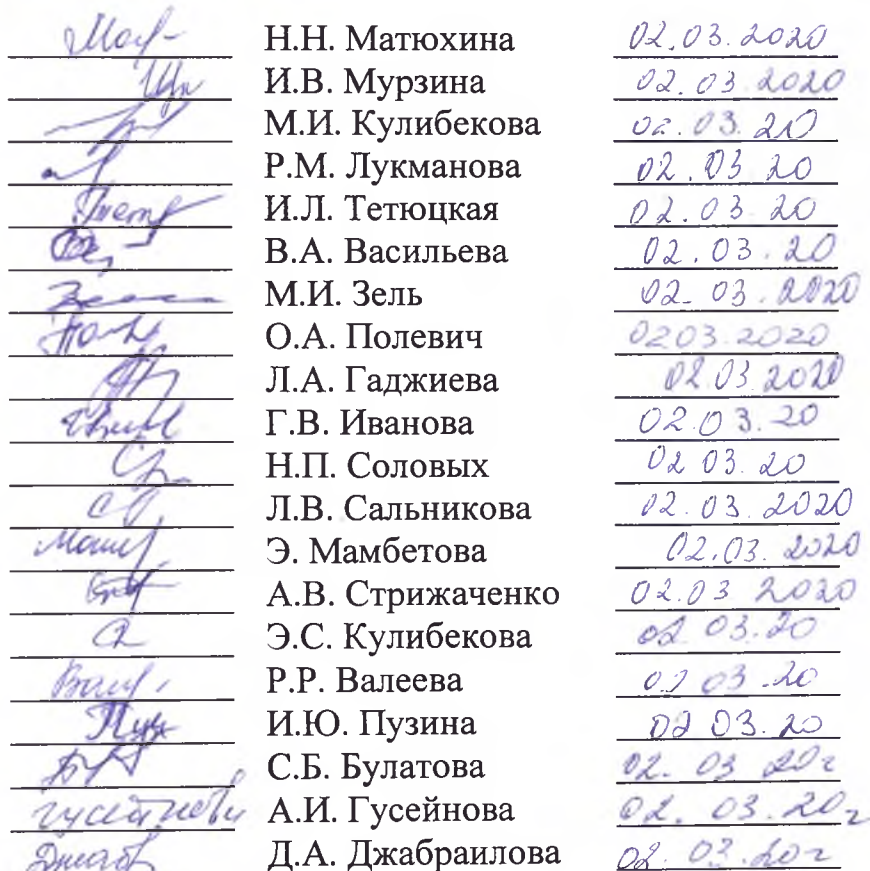 Н.Н. Матюхина 02.03.2020
И.В. Мурзина 02.03.2020
М.И. Кулибекова 02.03.20
Р.М. Лукманова 02.03.20
И.Л. Тетюцкая 02.03.20
В.А. Васильева 02.03.20
М.И. Зель 02.03.2020
О.А. Полевич 0203.2020
Л.А. Гаджиева 02.03.2020
Г.В. Иванова 02.03.20
Н.П. Соловых 02 03.20
Л.В. Сальникова 02.03.2020
Э. Мамбетова 02.03.2020
А.В. Стрижаченко 02.03 2020
Э.С. Кулибекова 02 03.20
Р.Р. Валеева 02 03.20
И.Ю. Пузина 02 03.20
С.Б. Булатова 02.03 20г
А.И. Гусейнова 02.03.20г
Д.А. Джабраилова 02.03.20г